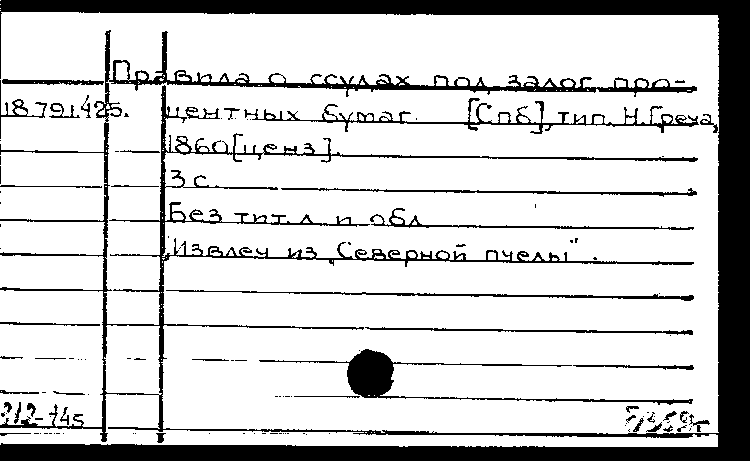 Правила о ссудах под залог про-
18.791.425. центных бумаг. [Спб], тип. Н. Греча,
1860 [ценз].
3 с.
Без тит. л. и обл.
Извлеч из „Северной пчелы".
312-745